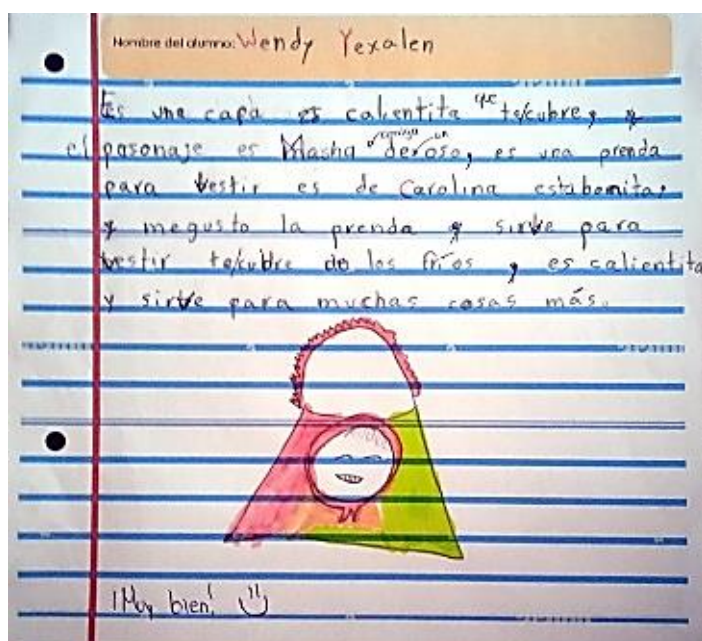 Nombre del alumno: Wendy Yexalen
Es una capa es calientita que te cubre, y
el pasonaje es Masha y consiga un deroso, es una prenda
para vestir es de Carolina esta bomita,
y megusto la prenda y sirve para
vestir te cubre de los fríos y es calientita
y sirve para muchas cosas más.
¡Muy bien!